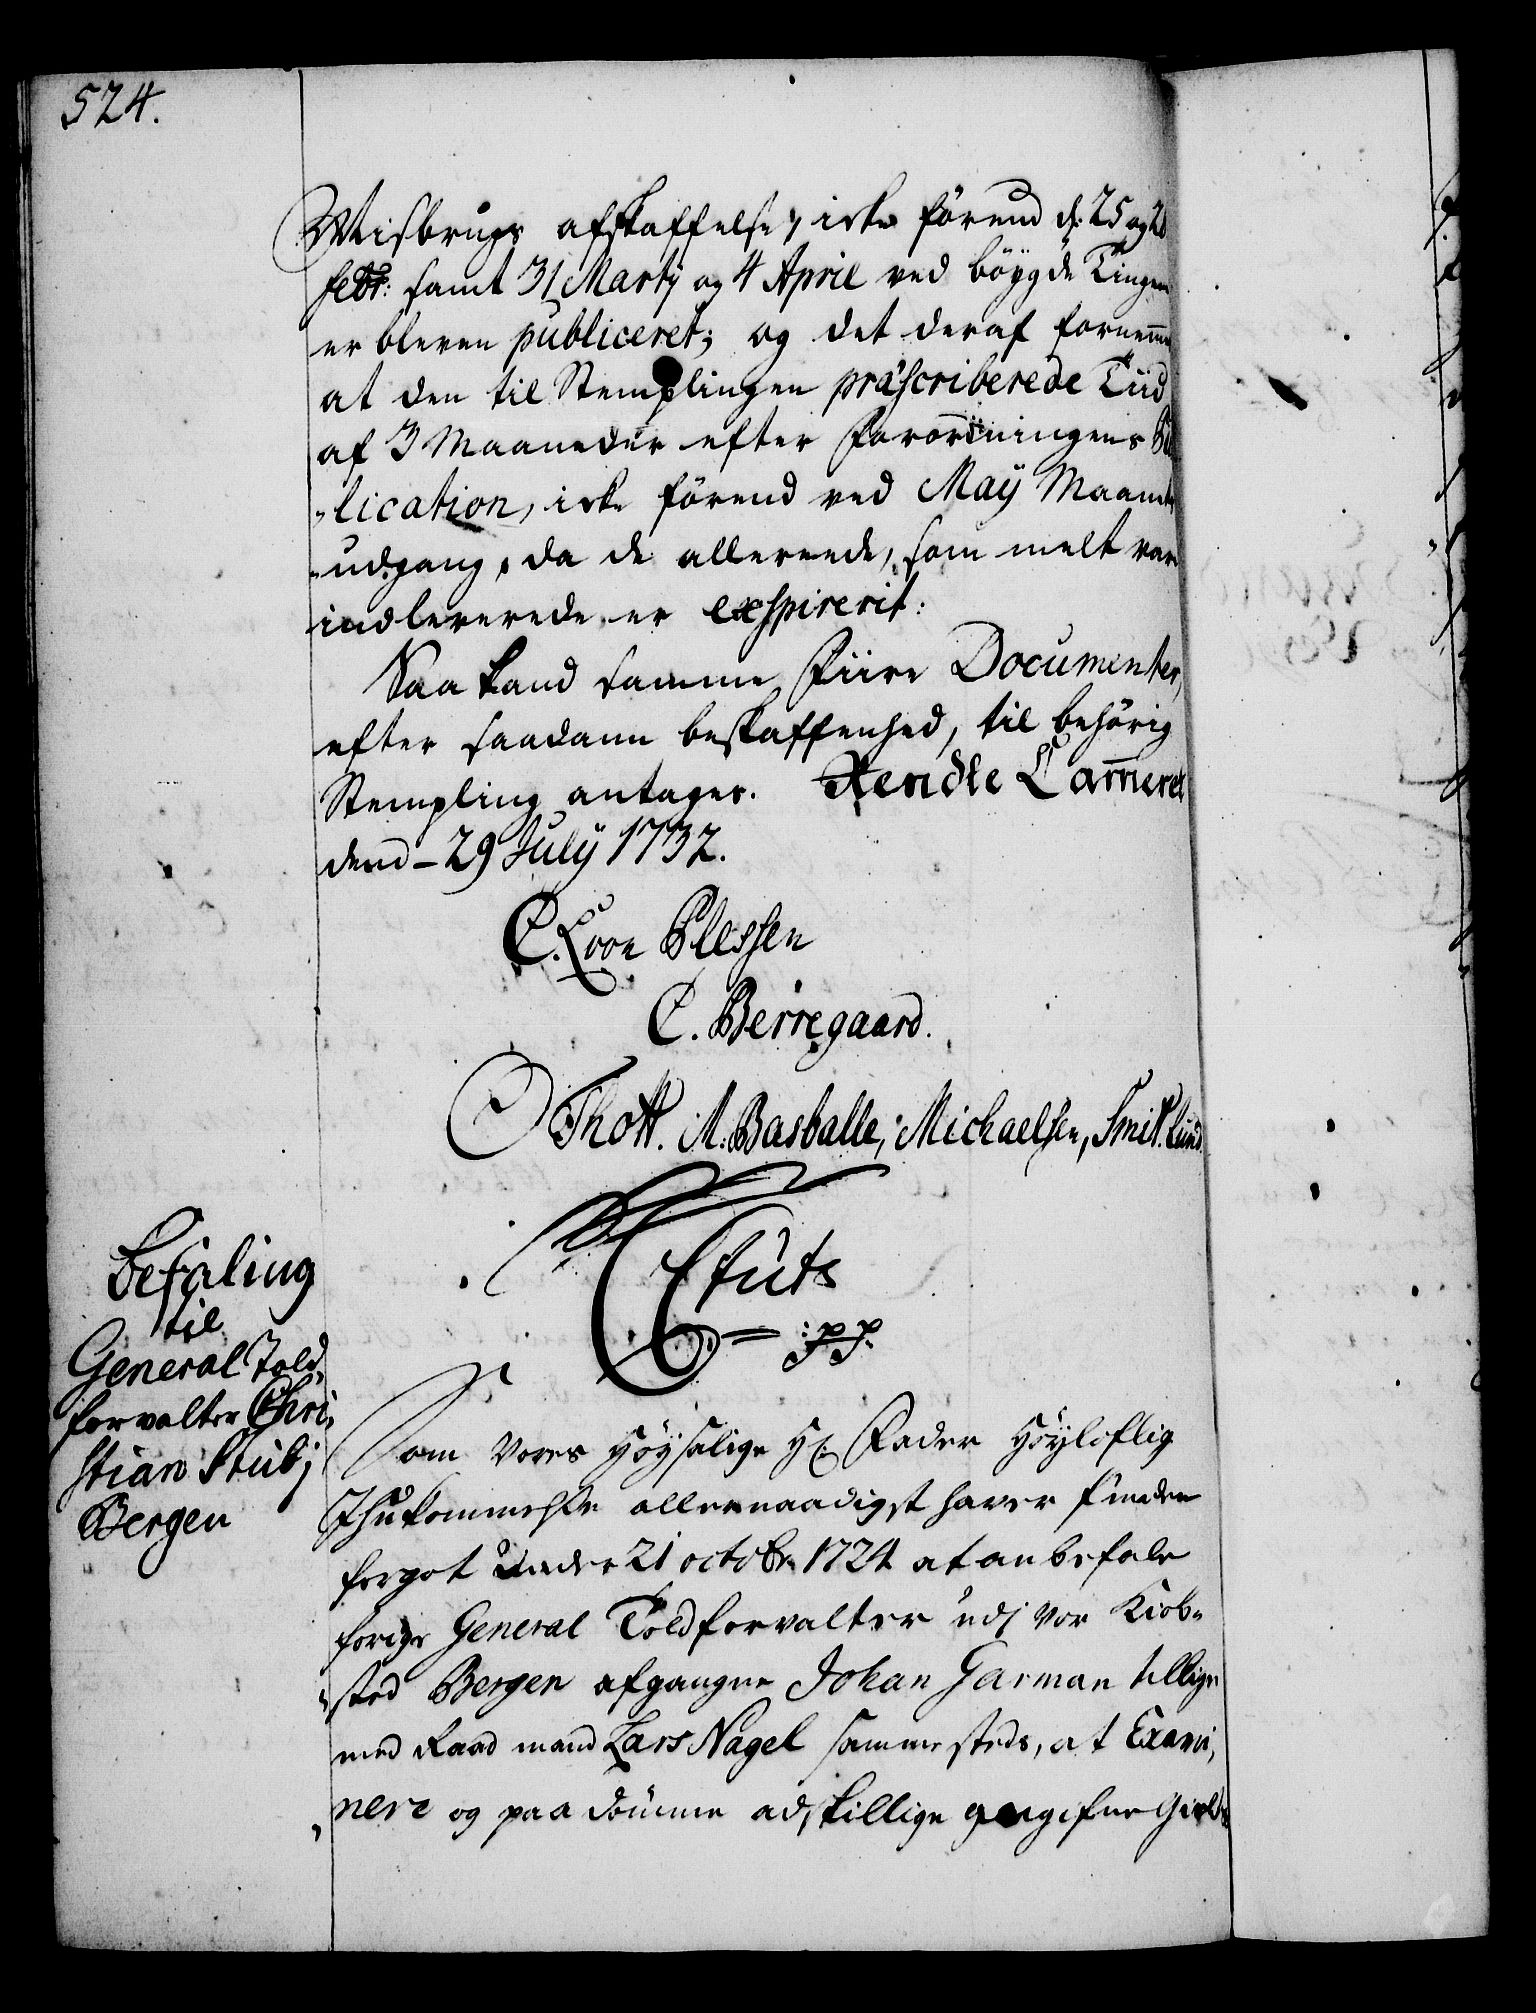 524.
Misbrugs afskaffelse, icke förend d: 25 og 28
febr: samt 31 Martj og 4 April ved böygde Tingene
er bleven publiceret; og det deraf fornemme
at den til Stemplingen præscriberede Tiid
af 3 Maaneder efter Forordningens Pub
lication, icke förend ved Maÿ Maaneds
udgang, da de allereede, som melt var
indleverede, er exspirerit:
Saa kand samme Fiire Documenter,
efter saadann beskaffenhed, til behörig
Stempling antages. Rendte Cammeret
dend 29 Julÿ 1732.
C. L von Plessen
C. Berregaard.
O Thott. M. Basballe, Michaelsen, Smit. Lund
Befaling
til
General Told
forvalter Chri
stian Stub j
Bergen
C 6tus
= :pp:
Som Vores Höysalige H: Fader Höyloflig
Ihukommelse allernaadigst haver funden
forgot under 21 octobr 1724 at anbefale
forige General Toldforvalter udj vor Kiöb
sted Bergen afgangne Johan Garman tillige
med Raad mand Lars Nagel sammesteds, at Exami
nere og paa dömme adskillige angifne Gields